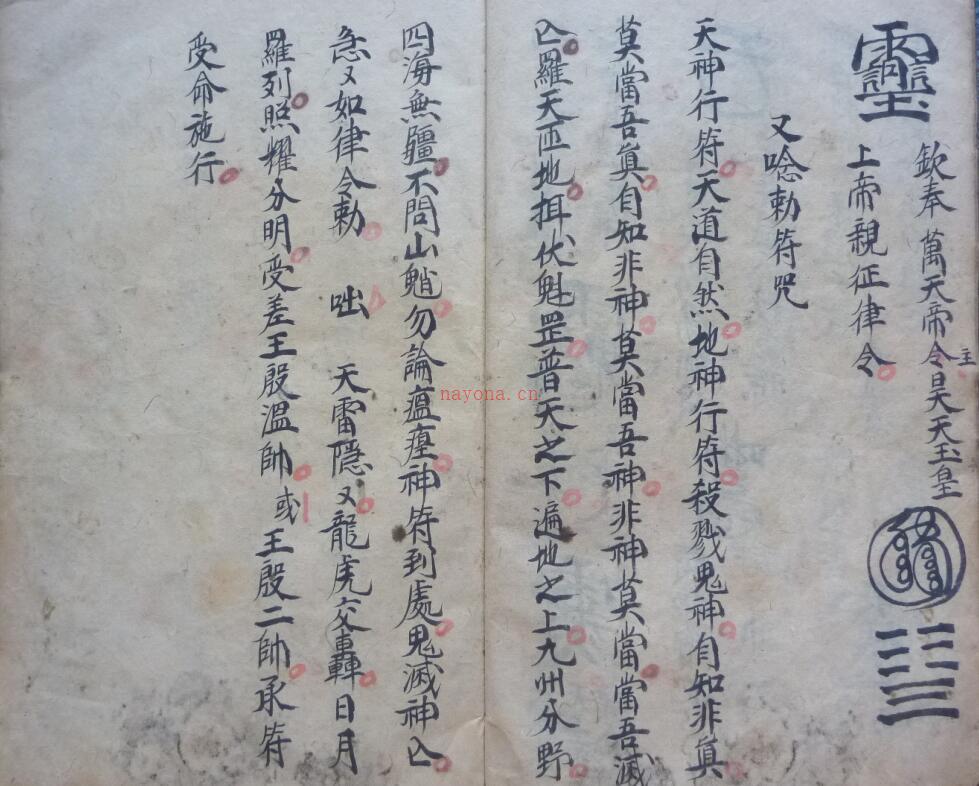 靈
欽奉萬天帝令主昊天玉皇
上帝親征律令
又唸勅符咒
天神行符天道自然地神行符殺戮鬼神自知非真
莫當吾真自知非神莫當吾神非神莫當當吾滅
亾羅天匝地揖伏魁罡普天之下遍地之上九州分野
四海無疆不問山魈勿論瘟𤶣神符到處鬼滅神亾
急又如律令勅 咄 天雷隱又龍虎交轟日月
羅列照耀分明受差王殷溫帥或王殷二帥承符
受命施行
nayona.cn